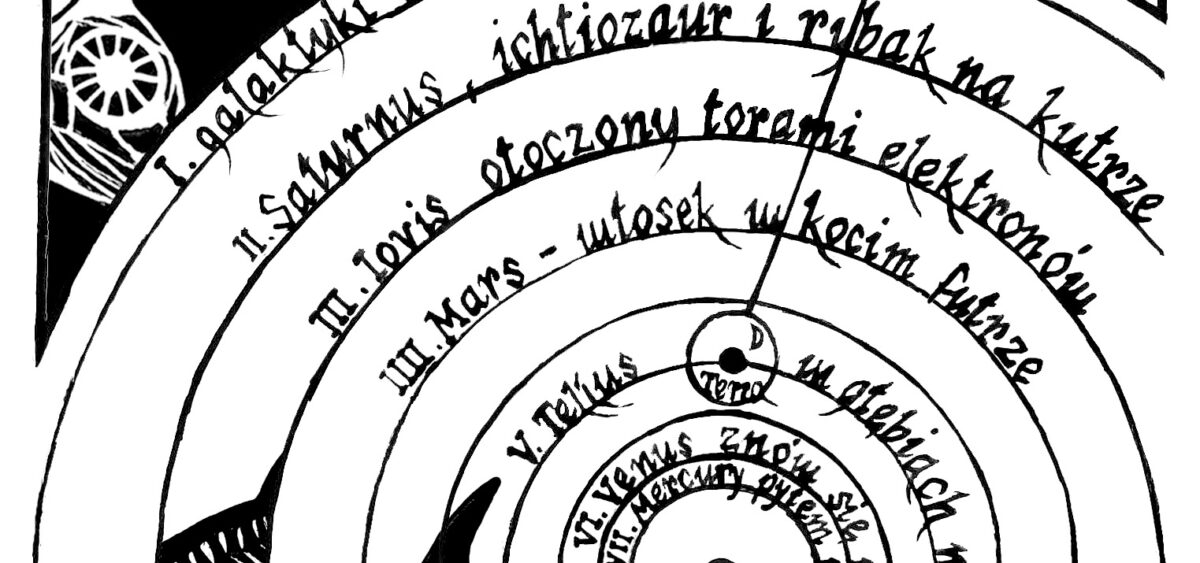 I. galaktyki
II. Saturnus, ichtiozaur i rybak na kutrze
III. Iovis otoczony torami elektronów
IIII. Mars – włosek w kocim futrze
V. Tellus w głębiach
D
Terra
VI. Venus znów się
VII. Mercury pyłem